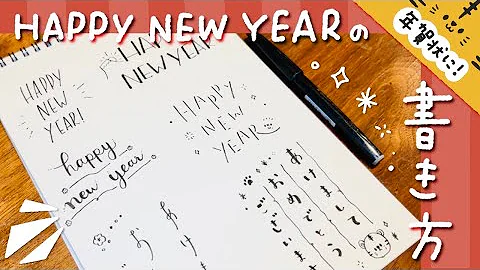 HAPPY NEW YEARの
書き方
年賀状に!
HAPPY
NEW YEAR
HAPPY
NEW
YEAR!
Happy
NEW
YEAR
happy
new year
あけまして
おめでとう
ございま
あけ
お